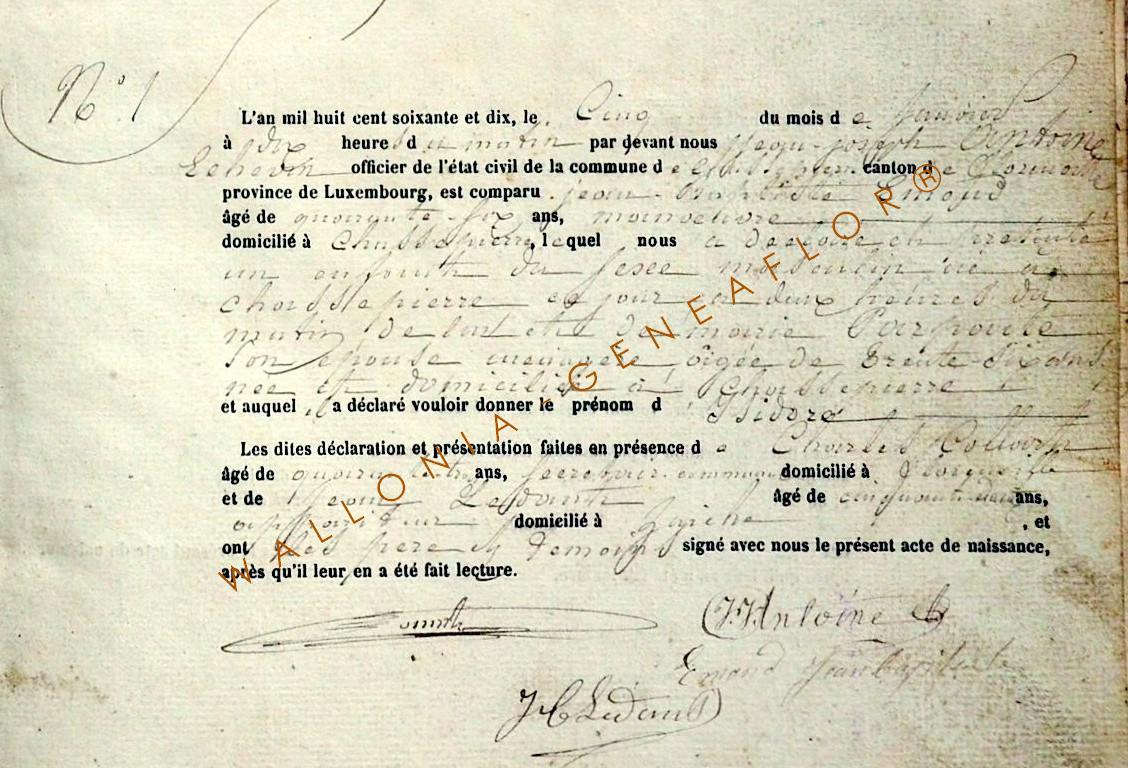 N° 1
L'an mil huit cent soixante et dix, le Cinq du mois de Janvier
à dix heures du matin par devant nous joseph Antoine
officier de l'état civil de la commune de canton de Florenville
province de Luxembourg, est comparu jean Baptiste Emond
âgé de quarante six ans, manoeuvre
domicilié à Chassepierre, lequel nous a declaré et presenté
un enfant du sexe masculin né à
chassepierre ce jour a deux heures du
matin de lui et de marie
son epouse menagère âgée de trente six ans
née et domiciliée à Chassepierre
et auquel il a déclaré vouloir donner le prénom d' Isidore
Les dites déclaration et présentation faites en présence de Charles
âgé de quarante ans, secretaire communal domicilié à Florenville
et de Jean Ledant âgé de cinquante deux ans,
domicilié à , et
ont les père et temoins signé avec nous le présent acte de naissance,
après qu'il leur en a été fait lecture.
JJAntoine
Emond Jean baptiste
JB Ledant
WALLONIA-GENEAFLOR®